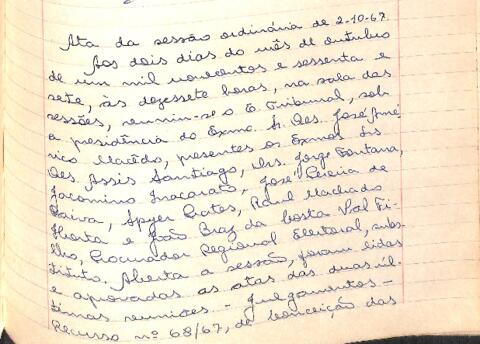 Ata da sessão ordinária de 2-10-67.
Aos dois dias do mês de outubro
de um mil novecentos e sessenta e
sete, às dezessete horas, na sala das
sessões, reuniu-se o E. Tribunal, sob
a presidência do Exmo. Sr. Des. José Amé-
rico Macêdo, presentes os Exmos Srs.
Des. Assis Santiago, Drs. Jorge Fontana,
Jacomino Inacarato, José Pereira de
Paiva, Spyer Prates, Raul Machado
Horta e João Braz da Costa Val Fi-
lho, Procurador Regional Eleitoral, subs-
tituto. Aberta a sessão, foram lidas
e aprovadas as atas das duas úl-
timas reuniões - Julgamentos -
Recurso nº 68/67, de Conceição das